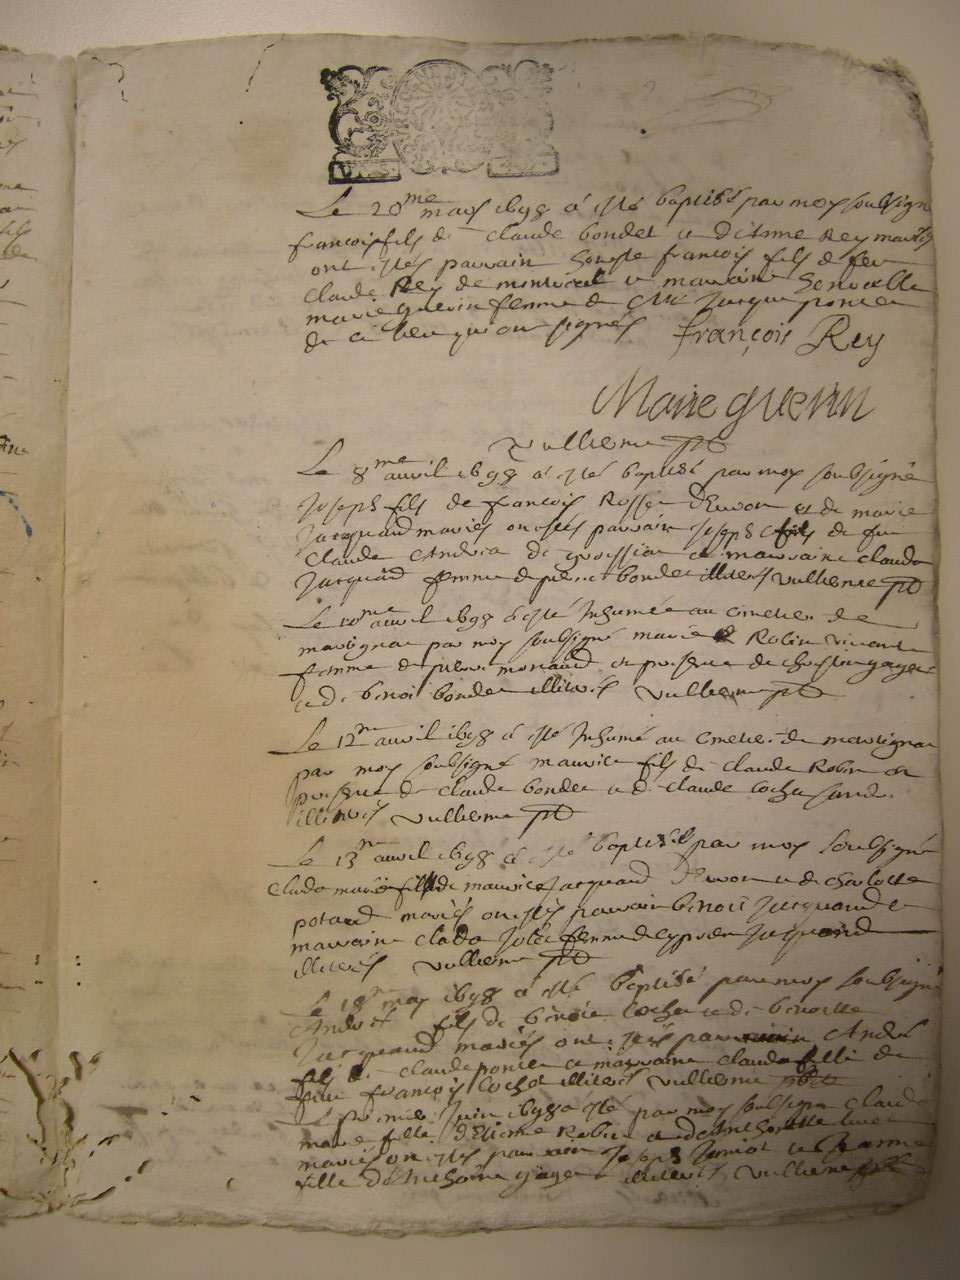 Le 20me mars 1698 a esté baptisé par moy soubsigné
françois fils de Claude bondet et d'Anne Rey mariés
ont estés parrain honeste françois fils de feu
Claude Rey de et marraine honorable
marie guerin femme de Me Jacque poncet
de ce lieu qui ont signés françois Rey
Marie guerin
Vullierme
Le 8me avril 1698 a esté baptisé par moy soubsigné
Joseph fils de françois Rosset et de marie
Jacquand mariés ont estés parrain Joseph fils de feu
Claude Andrea de et marraine Clauda
Jacquand femme de pierre bondet illiterés Vullierme
Le 10me avril 1698 a esté Inhumée au cimetier de
par moy soubsigné marie Robin vivante
femme de pierre monaud en presence de
et de benoi bondet illiterés Vullierme
Le 12me avril 1698 a esté Inhumé au cimetier de
par moy soubsigné maurice fils de Claude Robin en
presence de Claude bondet et de Claude Cochet
illiterés Vullierme
Le 13me avril 1698 a esté baptisée par moy soubsigné
Clauda marie fille de maurice Jacquand et de charlotte
mariés ont estés parrain benoit Jacquand et
marraine Clauda femme de Jacquand
illiterés Vullierme
Le 18me may 1698 a esté baptisé par moy soubsigné
André fils de benoit Cochet et de benoitte
Jacquand mariés ont estés parrain André
fils de Claude poncet et marraine Clauda fille de
feu françois Cochet illiterés Vullierme
Le premier Juin 1698 a esté par moy soubsigné Clauda
marie fille d'Etienne Robin et d'Anthoinette
mariés ont estés parrain Joseph et Jeanne
fille d'Anthoine illiterés Vullierme